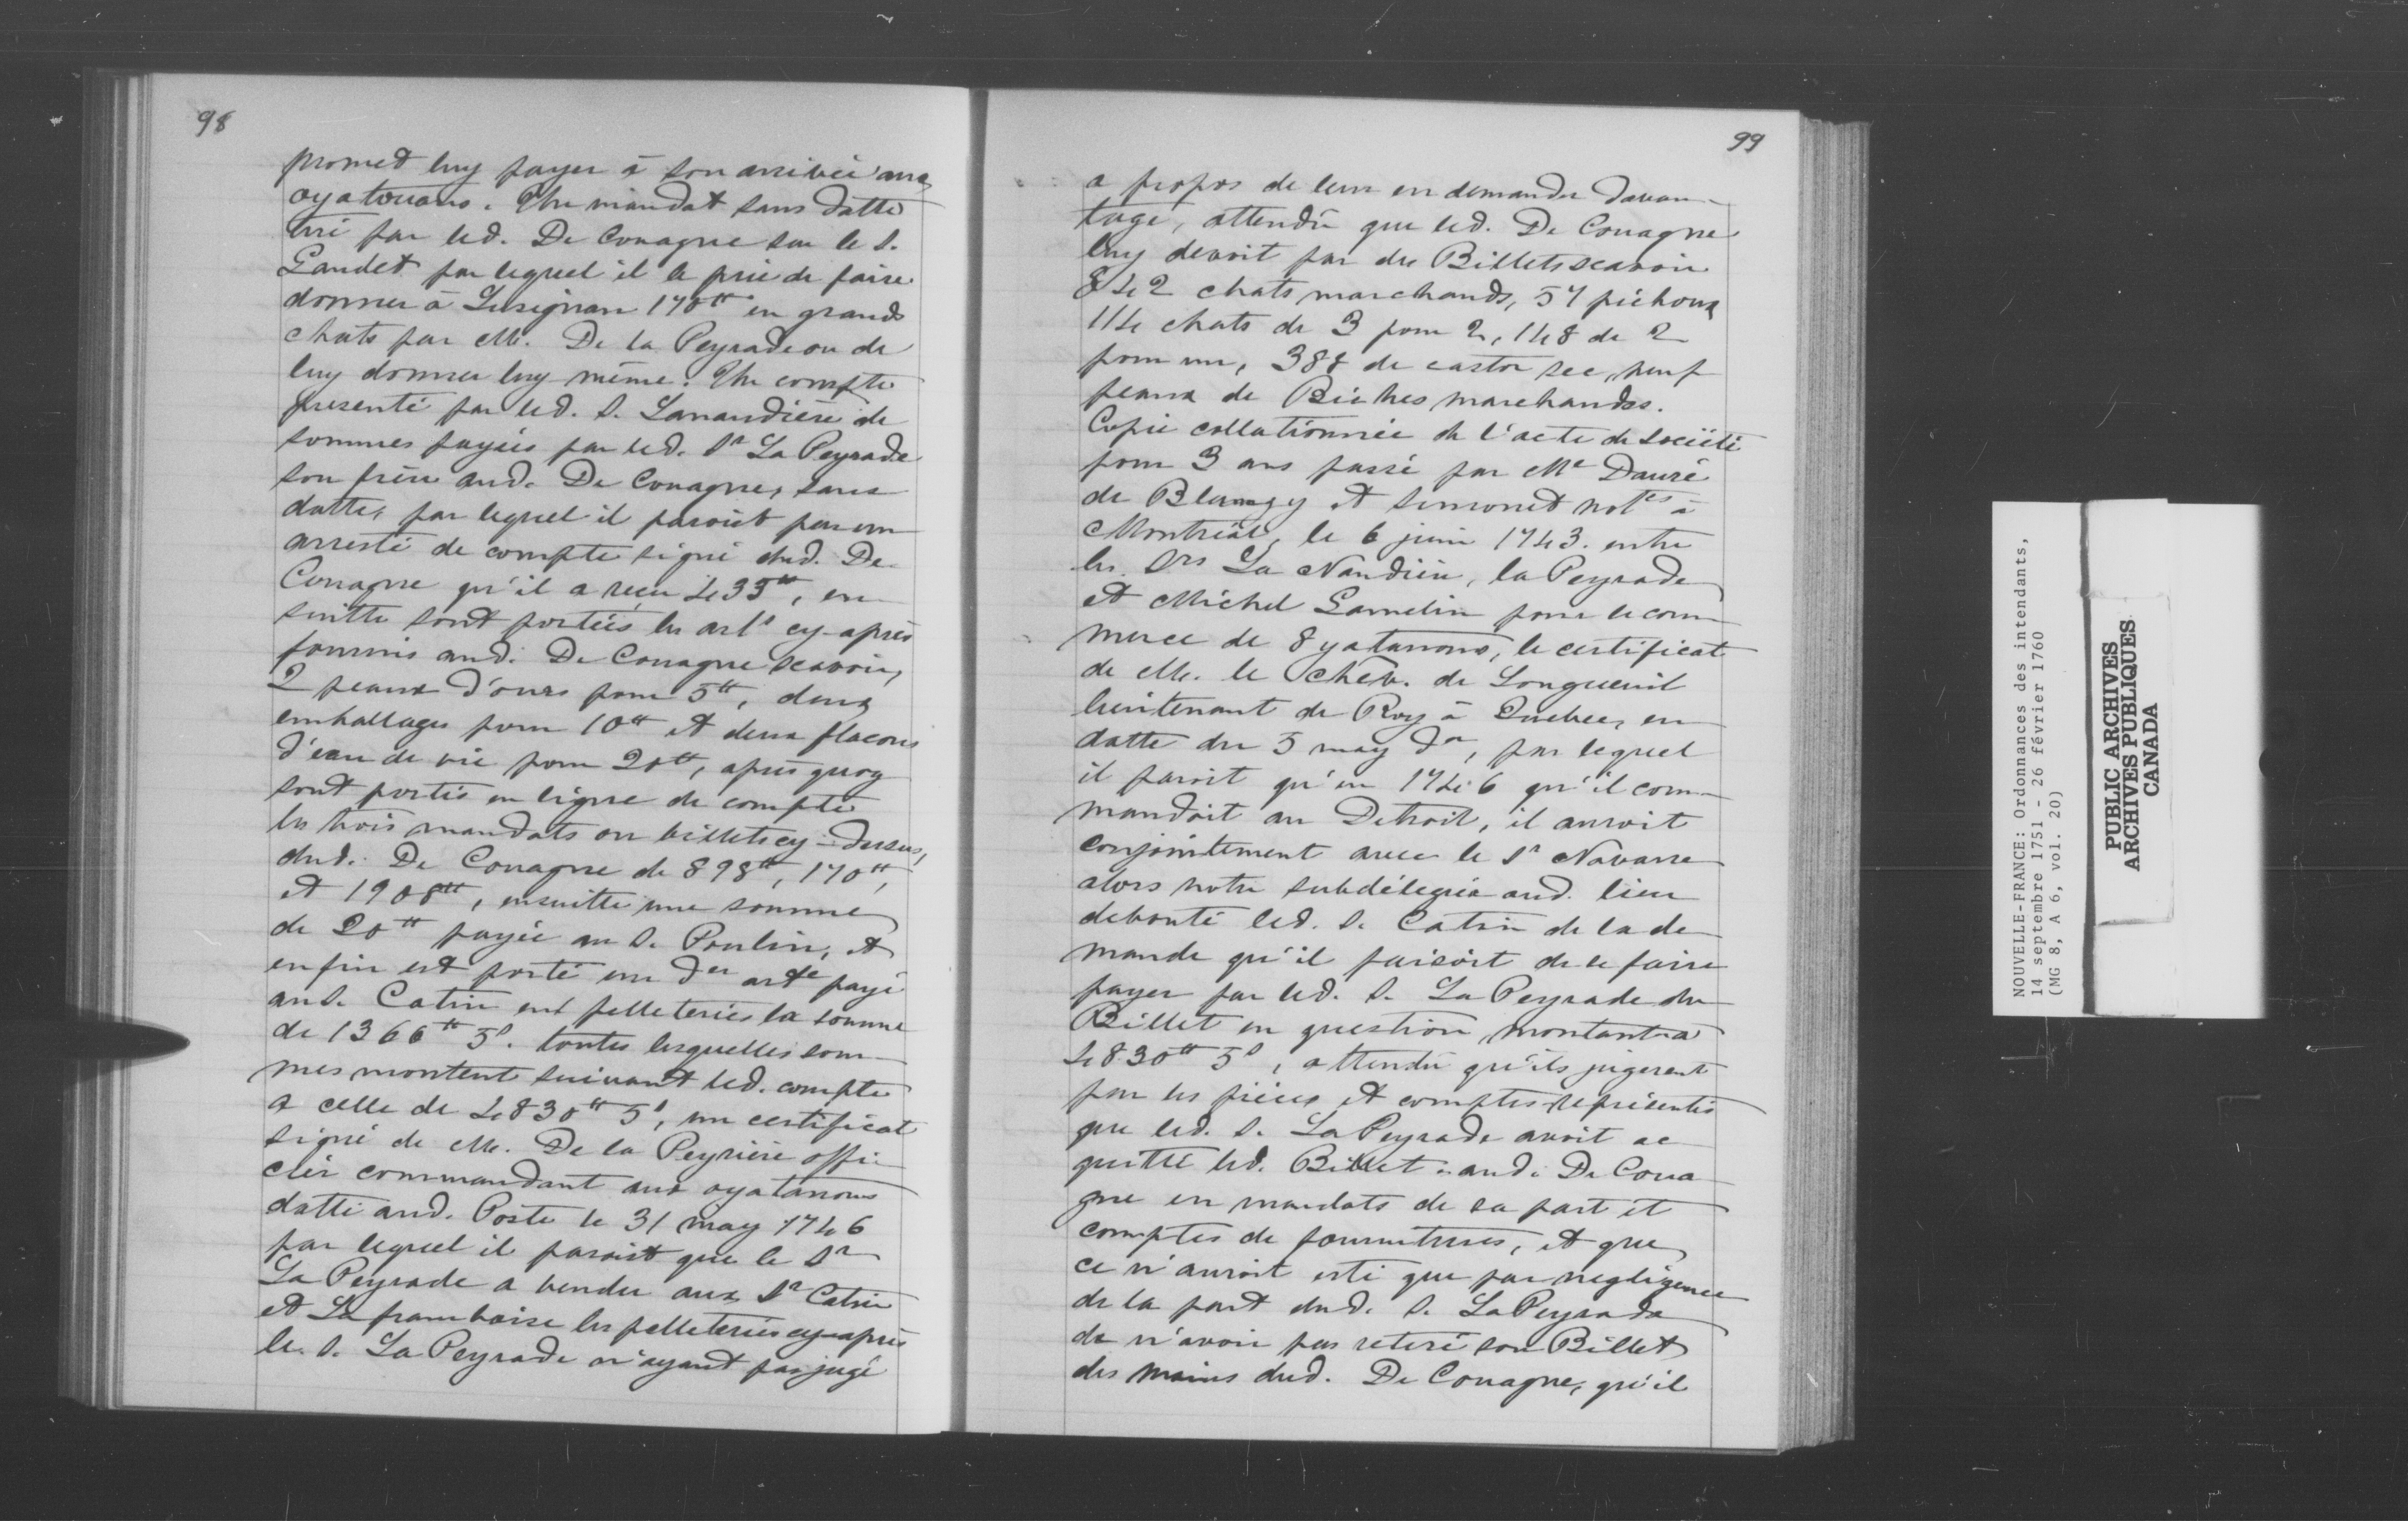 98
promet luy payer à son arrivée aux
oyatouans. Un mandat sans datte
tiré par led. De Couagne sur le S.
Gaudet par lequel il le prie de faire
donner à Lusignan 170tt en grands
chats par M. De la Peyrade ou de
luy donner luy-même. Un compte
presenté par led. S. Lanaudière de
sommes payées par led. Sr La Peyrade
son frère aud. De Couagne, sans
datte, par lequel il paroist par un
arresté de compte signé dud. De
Couagne qu'il a reçu 433tt, en
suitte sont portées les artˢ cy-après
fournis aud. De Couagne scavoir,
2 peaux d'ours pour 5tt, deux
emballages pour 10tt et deux flacons
d'eau de vie pour 20tt, après quoy
sont portés en ligne de compte
les trois mandats ou billets cy-dessus,
dud. De Couagne de 898tt, 170tt,
et 1908tt, ensuitte une somme
de 20tt payée au S. Poulin, et
enfin est porté un der arde payé
au S. Catin en pelleteries la somme
de 1366tt 5s. toutes lesquelles som-
mes montent suivant led. compte
a celle de 4830tt 5s, un certificat
signé de M. De la Peyrière offi-
cier commandant aux oyatanons
datté aud. Poste le 31 may 1746
par lequel il paroist que le Sr
La Peyrade a vendu aux Sr Catin
et La framboise les pelleteries cy-après
le S. La Peyrade n'ayant pas jugé
99
a propos de leur en demander davan-
tage, attendu que led. De Couagne
luy devoit par des Billets scavoir
842 chats marchands, 57 pichoux
114 chats de 3 pour 2, 148 de 2
pour un, 388 de castor sec, neuf
peaux de Biches marchandes.
Copie collationnée de l'acte de société
pour 3 ans passé par Me Dauré
de Blanzy et Simonet notes à
Montréal, le 6 juin 1743. entre
les Srs La Naudière, la Peyrade
et Michel Gamelin pour le com-
merce de 8yatanons, le certificat
de M. le Chev. de Longueuil
lieutenant de Roy à Quebec, en
datte du 5 may der, par lequel
il paroit qu'en 1746 qu'il com-
mandoit au Detroit, il auroit
conjointement avec le Sr Navarre
alors notre subdélégué aud. lieu
debouté led. S. Catin de la de-
mande qu'il faisoit de se faire
payer par led. S. La Peyrade du
Billet en question montant a
4830tt 5s, attendu qu'ils jugerent
par les pièces et comptes représentés
que led. S. La Peyrade avoit ac-
quitté led. Billet aud. De Coua-
gne en mandats de sa part et
comptes de fournitures, et que
ce n'auroit esté que par negligence
de la part dud. S. La Peyrade
de n'avoir pas retiré son Billet
des mains dud. De Couagne, qu'il
NOUVELLE-FRANCE: Ordonnances des intendants,
14 septembre 1751 - 26 février 1760
(MG 8, A 6, vol. 20)
PUBLIC ARCHIVES
ARCHIVES PUBLIQUES
CANADA